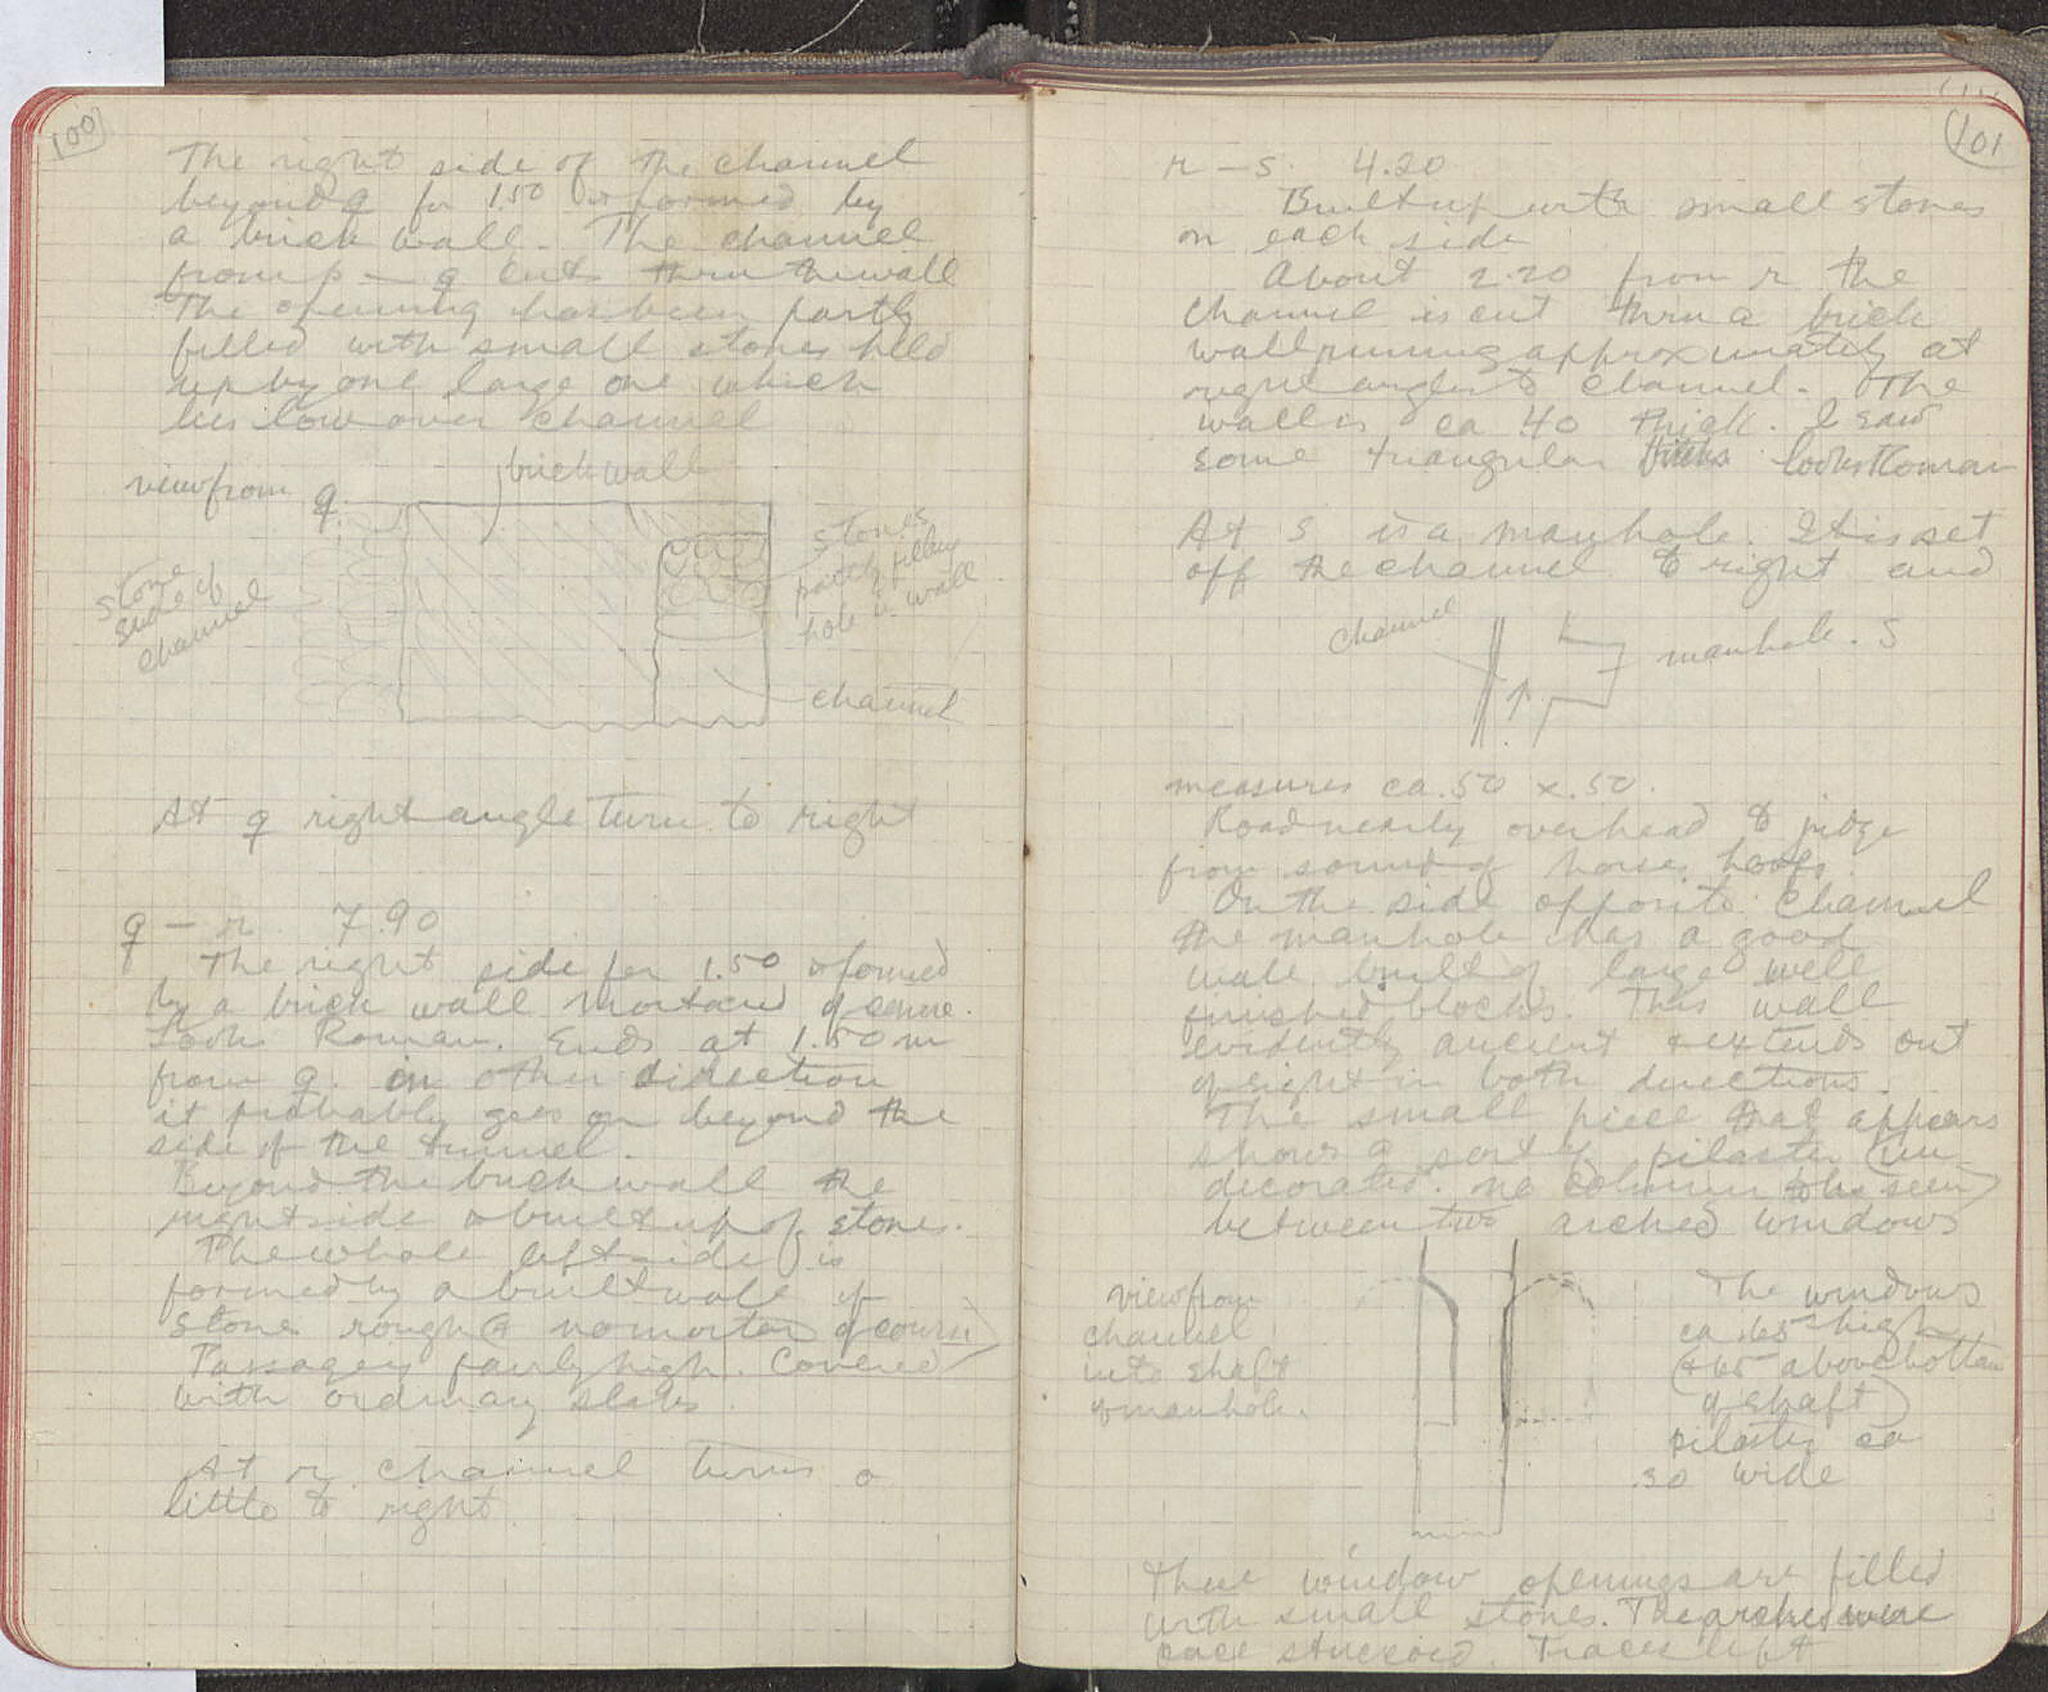 100
The right side of the channel
beyond q for 1.50 is formed by
a brick wall. The channel
from p – q cuts thru the wall
The opening has been partly
filled with small stones held
up by one large one which
lies low over channel
view from q.
brick wall
stone
side of
channel
stones
partly filling
hole in wall
channel
At q right angle turn to right
q – r 7.90
The right side for 1.50 is formed
by a brick wall mortared of course.
Looks Roman. Ends at 1.50 m
from q. in other direction
it probably goes on beyond the
side of the tunnel.
Beyond the brick wall the
right side is built up of stones.
The whole left side is
formed by a built wall of
stone rough & no mortar of course
Passage is fairly high. Covered
with ordinary slabs.
At r channel turns a
little to right
101
r – s. 4.20
Built up with small stones
on each side
About 2.20 from r the
channel is cut thru a brick
wall running approximately at
right angles to channel. The
wall is ca 40 thick. I saw
some triangular bricks looks Roman
At S is a manhole. It is set
off the channel to right and
channel
manhole. S
measures ca .50 x .50.
Road nearly overhead to judge
from sound of horses hoofs.
On the side opposite channel
the manhole has a good
wall built of large well
finished blocks. This wall
evidently ancient & extends out
of sight in both directions.
The small piece that appears
shows a sort of pilaster (un
decorated. no column to be seen)
between two arched windows
view from
channel
into shaft
of manhole.
The windows
ca .65 high
(& 65 above bottom
of shaft)
pilaster ca
.30 wide
These window openings are filled
with small stones. The arches were
once stuccoed. Traces left